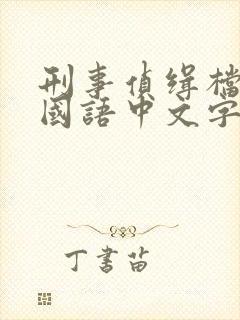 刑事偵缉檔
國語中文字
丁書苗